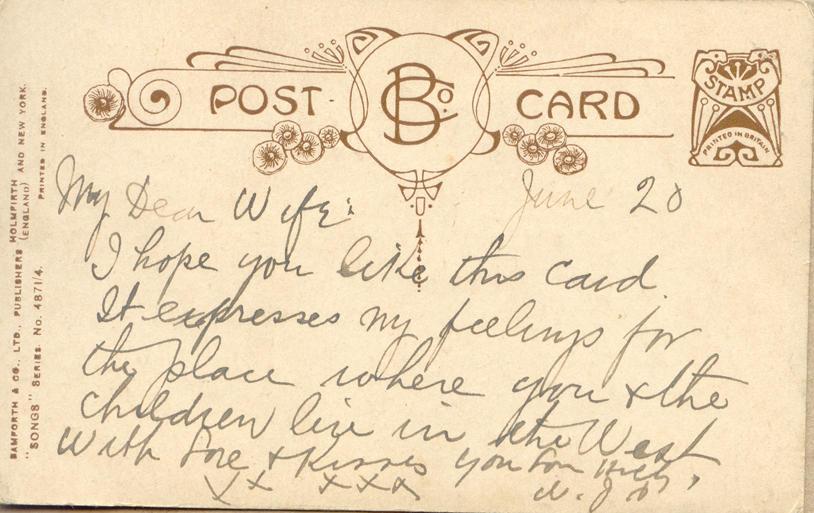 POST CARD
B Co.
STAMP
PRINTED IN BRITAIN
BAMFORTH & CO., LTD., PUBLISHERS HOLMFIRTH (ENGLAND) AND NEW YORK.
"SONGS" SERIES. No. 4871/4.
PRINTED IN ENGLAND.
June 20
My Dear Wife:
I hope you like this card.
It expresses my feelings for
the place where you & the
children live in the West
With Love & Kisses your
xx xxx